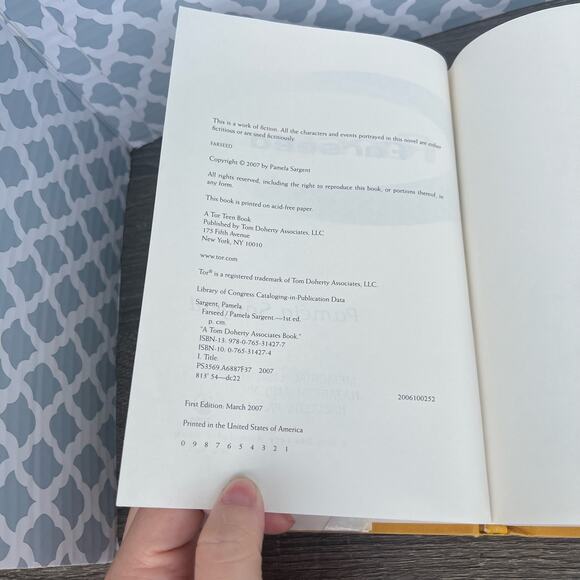 This is a work of fiction. All the characters and events portrayed in this novel are either
fictitious or are used fictitiously.
FARSEED
Copyright © 2007 by Pamela Sargent
All rights reserved, including the right to reproduce this book, or portions thereof, in
any form.
This book is printed on acid-free paper.
A Tor Teen Book
Published by Tom Doherty Associates, LLC
175 Fifth Avenue
New York, NY 10010
www.tor.com
Tor® is a registered trademark of Tom Doherty Associates, LLC.
Library of Congress Cataloging-in-Publication Data
Sargent, Pamela
Farseed / Pamela Sargent.—1st ed.
p. cm.
"A Tom Doherty Associates Book."
ISBN-13: 978-0-765-31427-7
ISBN-10: 0-765-31427-4
I. Title.
PS3569.A6887F37 2007
813' 54—dc22
2006100252
First Edition: March 2007
Printed in the United States of America
0 9 8 7 6 5 4 3 2 1